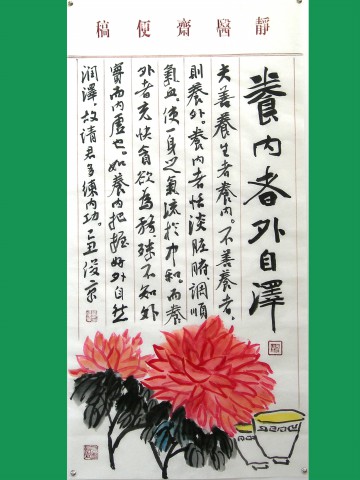 靜醫齋便稿
養內者外自澤
夫善養生者養內。不善養者、
則養外。養內者恬淡脏腑、調順
氣血。使一身之氣流於中和。而養
外者充快貪欲為務。殊不知外
實而內虛也。如養內把握好外自然
润澤。故請君多練內功。己丑俊京